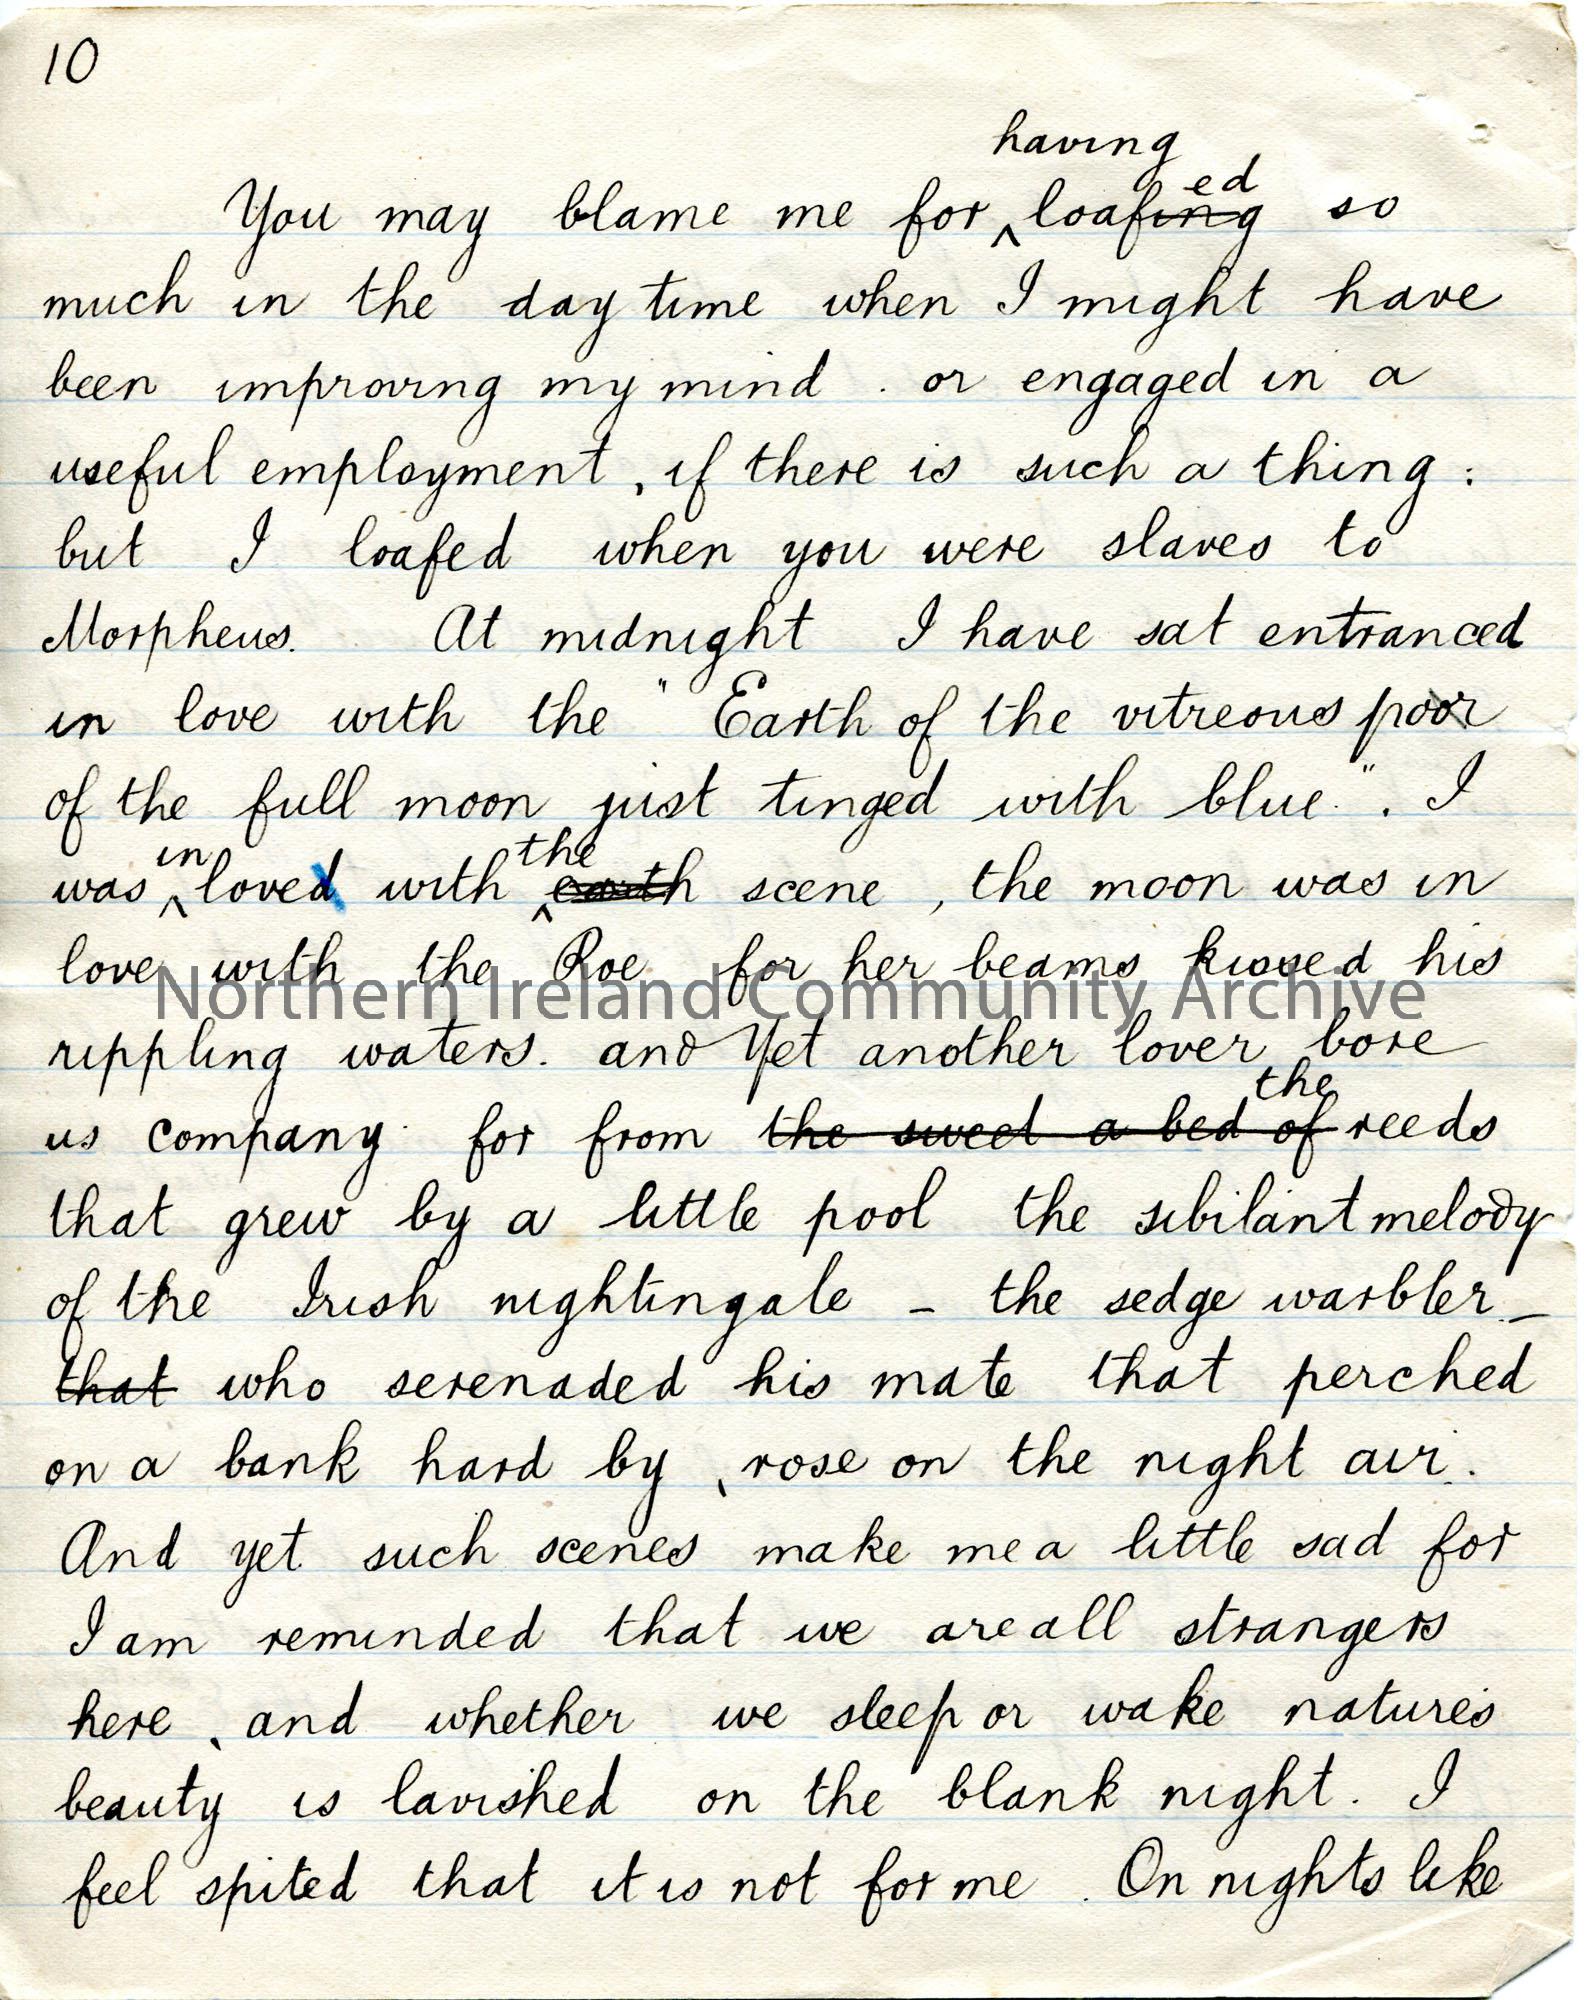 10
having
You may blame me for ‸ loafing ed so
much in the day time when I might have
been improving my mind . or engaged in a
useful employment , if there is such a thing :
but I loafed when you were slaves to
Morpheus. At midnight I have sat entranced
in love with the " Earth of the vitreous poor
of the full moon just tinged with blue " . I
was ‸ in loved with ‸ the earth scene , the moon was in
love with the Roe for her beams kissed his
Northern Ireland Community Archive
rippling waters. and Yet another lover bore
us company for from the sweet a bed of the reeds
that grew by a little pool the sibilant melody
of the Irish nightingale - the sedge warbler -
that who serenaded his mate that perched
on a bank hard by , rose on the night air .
And yet such scenes make me a little sad for
I am reminded that we are all strangers
here , and whether we sleep or wake nature's
beauty is lavished on the blank night . I
feel spited that it is not for me . On nights like